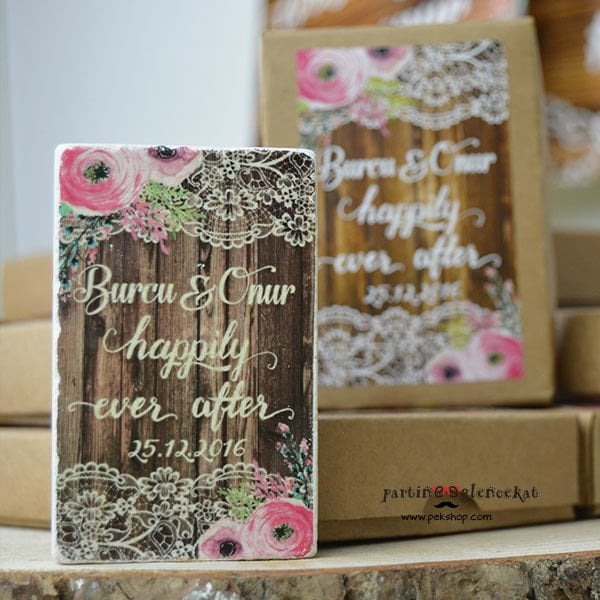 Burcu & Onur
happily
ever after
25.12.2016
Burcu & Onur
happily
ever after
25.12.2016
partine eglencekat
www.pekshop.com